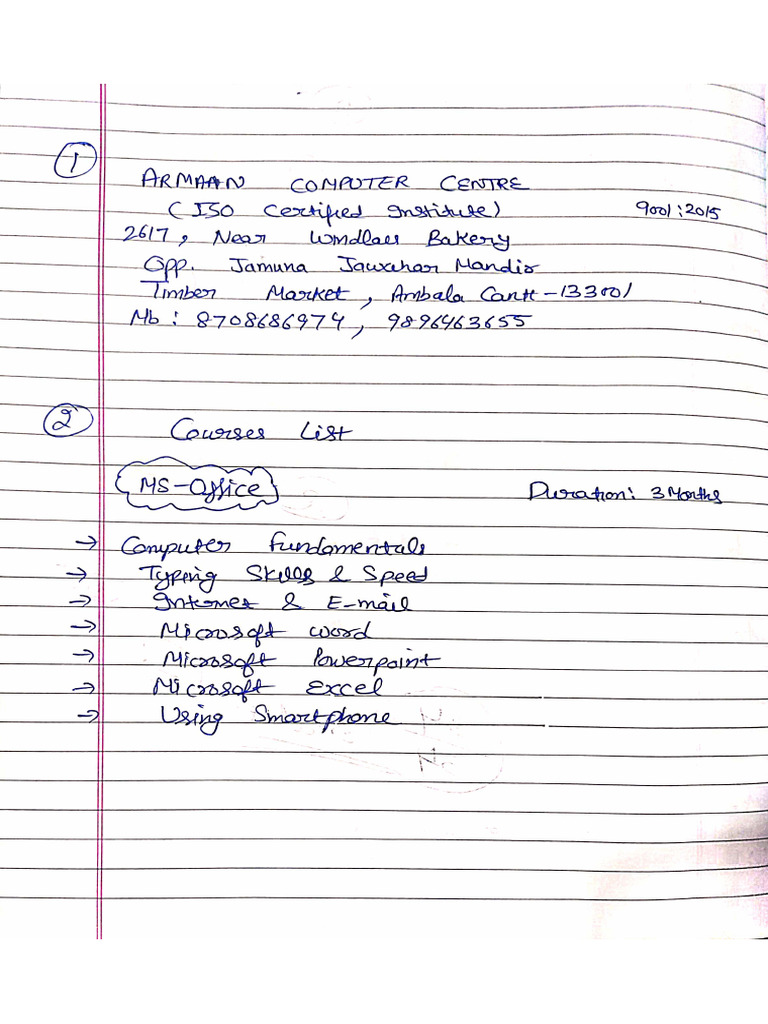 1
ARMAAN COMPUTER CENTRE
(ISO Certified Institute) 9001:2015
2617, Near Windlass Bakery
Opp. Jamuna Jawahar Mandir
Timber Market, Ambala Cantt-133001
Mb: 8708686974, 9896463655
2 Courses List
MS-Office Duration: 3 Months
→ Computer Fundamentals
→ Typing Skills & Speed
→ Internet & E-mail
→ Microsoft word
→ Microsoft Powerpoint
→ Microsoft Excel
→ Using Smartphone